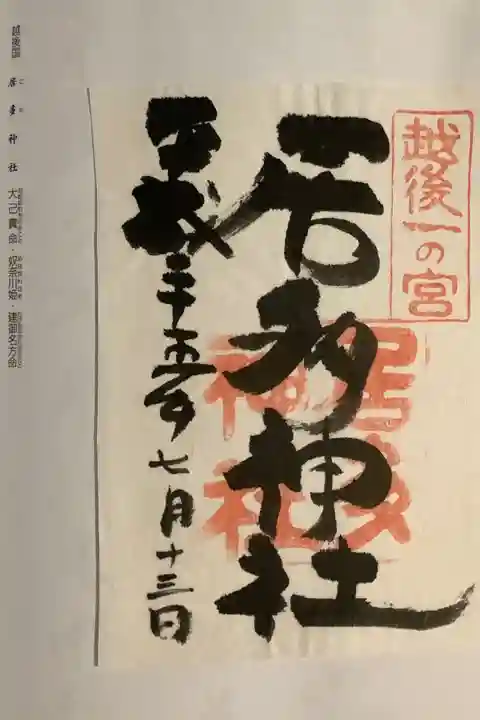 越後一の宮
居多神社
居多
神社
平成二十五年七月十三日
越後国 居多神社 大己貴命・奴奈川姫・建御名方命